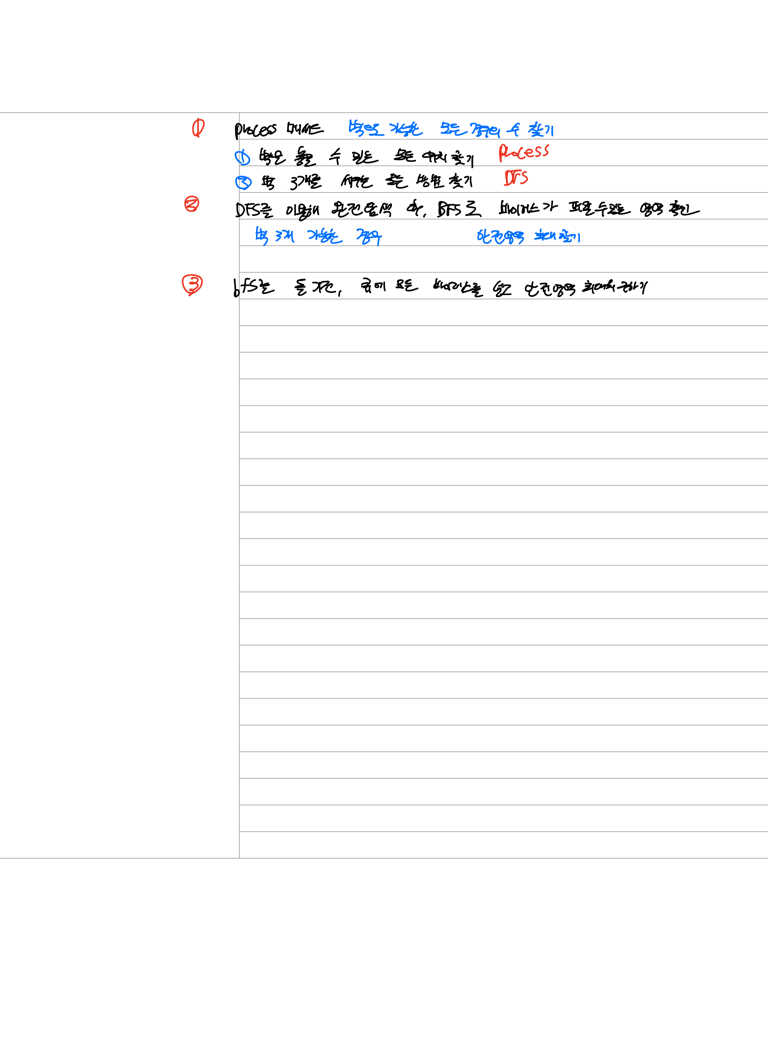 ① Process 메서드 벽으로 가능한 모든 경우의 수 찾기
① 벽은 놓을 수 있는 모든 위치 찾기 Process
② 벽 3개를 세우는 모든 방법 찾기 DFS
② DFS를 이용해 완전탐색 후, BFS로 바이러스가 퍼질 수 있는 영역 확인
벽 3개 가능한 경우 안전영역 최대 찾기
③ bfs를 돌 기전, 큐에 모든 바이러스를 넣고 안전영역 최대치 구하기